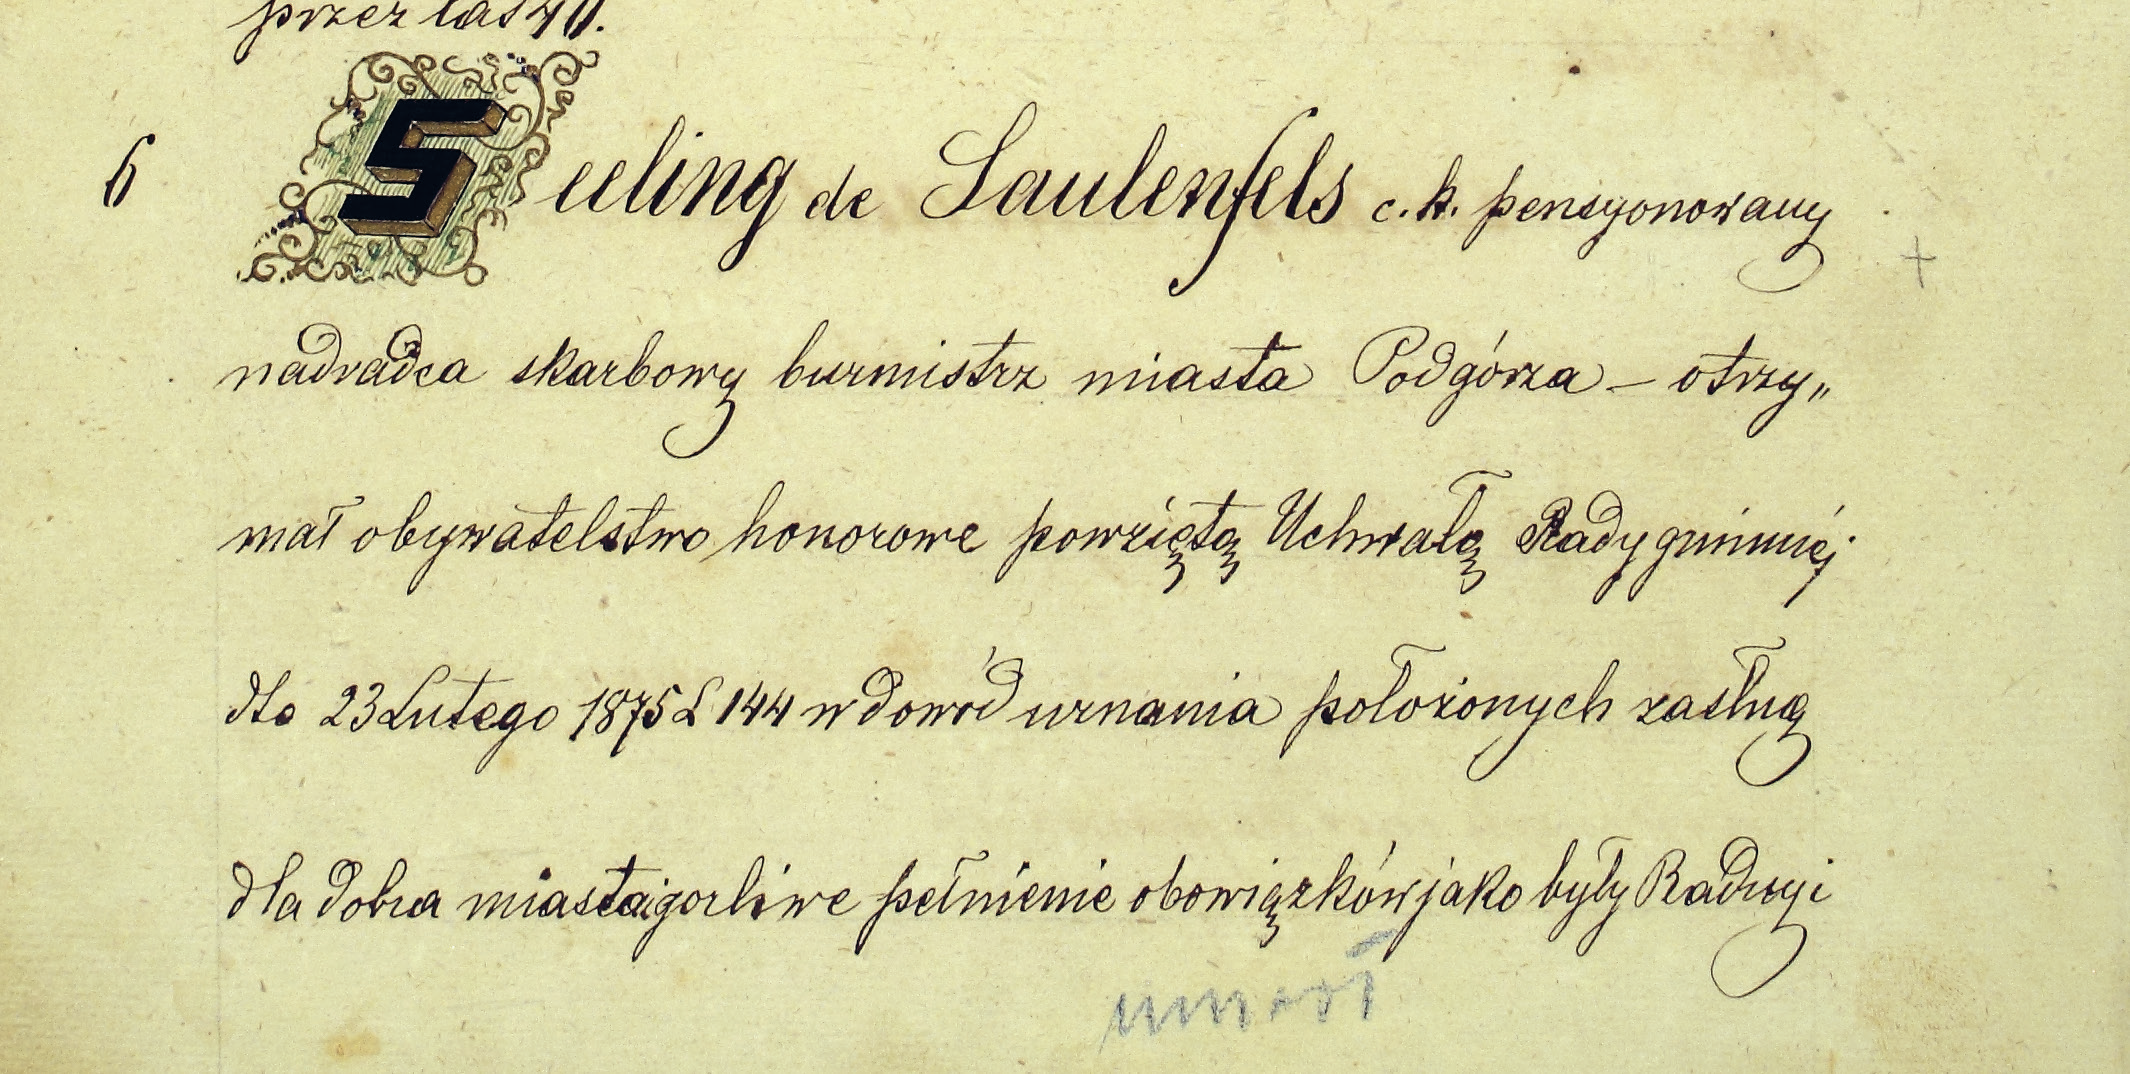 przez lat 40.
6 Seeling de Saulenfels c. k. pensyonowany
nadradca skarbowy burmistrz miasta Podgórza – otrzy„
mał obywatelstwo honorowe powziętą Uchwałą Rady gminnéj
dto 23 Lutego 1875 L 144 w dowód uznania położonych zasług
dla dobra miasta i gorliwe pełnienie obowiązków jako były Radny i
umarł